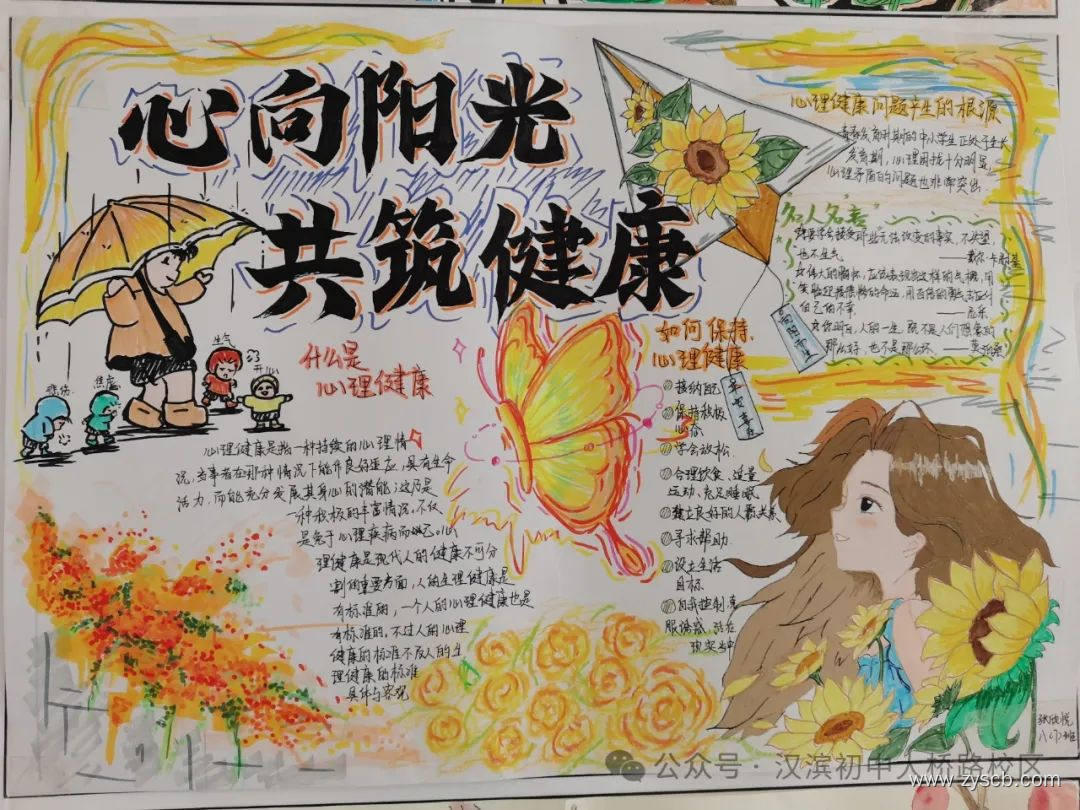 心向阳光
共筑健康
心理健康问题产生的根源
青春发育时期的中小学生正处于生长
发育期，心理困扰十分明显，
心理矛盾的问题也非常突出
名人名言
不失望，
也不生气
——戴尔·卡耐基
有伟大的胸怀，应该表现出这样的气概，用
笑脸迎接悲惨的命运，用百倍的勇气去应付
自己的不幸。
人的一生，既不是人们想象的
那么好，也不是那么坏。——莫泊桑
向阳而生
平安喜乐
生气
开心
悲伤
焦虑
什么是
心理健康
心理健康是指一种持续的心理情
况，当事者在那种情况下能作良好适应，具有生命
活力，而能充分发展其身心的潜能；这乃是
一种积极的丰富情况。不仅
是免于心理疾病而已。心
理健康是现代人的健康不可分
割的重要方面，人的生理健康是
有标准的，一个人的心理健康也是
有标准的。不过人的心理
健康的标准不及人的生
理健康的标准
具体与客观
如何保持
心理健康
①接纳自己
②保持积极
心态
③学会放松
④合理饮食、适量
运动、充足睡眠
⑤建立良好的人际关系
⑥寻求帮助
⑦设立生活
目标
⑧自我控制,克
服诱惑，活在
现实当中
公众号·汉滨初中大桥路校区
www.zyscb.com